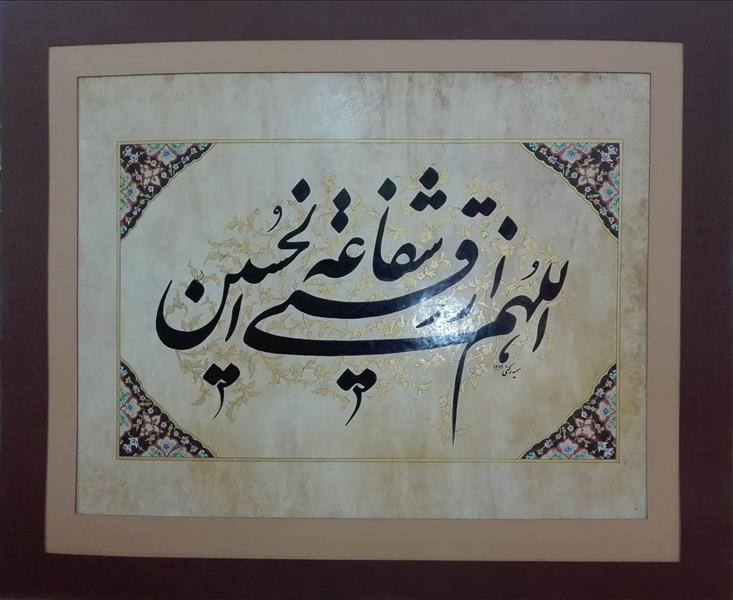 اللهم ارزقنی شفاعة الحسین